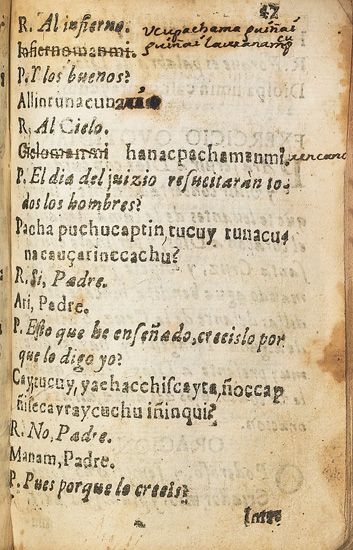 42
R. Al infierno. Vcupachama
Infiernomanmi.
P. Y los buenos?
Allin runacuna
R, Al Cielo.
Cielomanmi hanacpachamanmi
P. El dia del juizio resucitaràn to-
dos los hombres?
Pacha puchucaptin, tucuy runacu-
na cauçarinccachu?
R. Si, Padre.
Ari, Padre.
P. Esto que he enseñado, creeislo por
que lo digo yo?
Cay tucuy, yachacchiscayta, ñoccap
ñiscayraycuchu iñinqui?
R. No, Padre.
Manam, Padre.
P. Pues porque lo creeis?